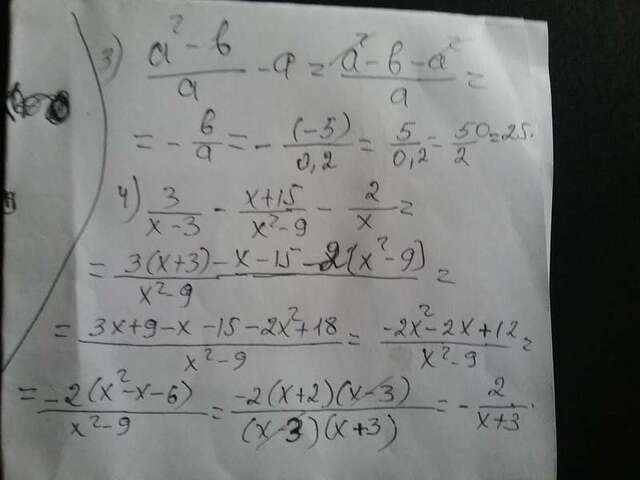 3) (a² - b)/a - a = (a² - b - a²)/a =
= - b/a = - (-5)/0,2 = 5/0,2 = 50/2 = 25.
4) 3/(x-3) - (x+15)/(x²-9) - 2/x =
= (3(x+3) - x - 15 - 2(x²-9))/(x²-9) =
= (3x+9-x-15-2x²+18)/(x²-9) = (-2x²-2x+12)/(x²-9) =
= (-2(x²-x-6))/(x²-9) = (-2(x+2)(x-3))/((x-3)(x+3)) = - 2/(x+3).